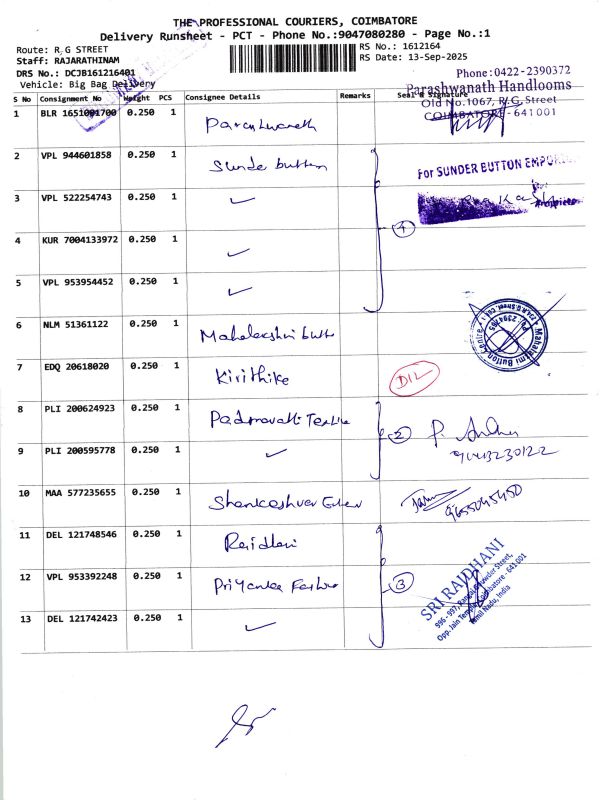 THE PROFESSIONAL COURIERS, COIMBATORE
Delivery Runsheet - PCT - Phone No.:9047080280 - Page No.:1
Route: R.G STREET RS No.: 1612164
Staff: RAJARATHINAM RS Date: 13-Sep-2025
DRS No.: DCJB161216401
Vehicle: Big Bag Delivery
Phone:0422-2390372
Parashwanath Handlooms
Old No.1067, R.G. Street
COIMBATORE-641001
S No Consignment No Weight PCS Consignee Details Remarks Seal & Signature
1 BLR 1651001700 0.250 1 Parashwanath
2 VPL 944601858 0.250 1 Sunder button
For SUNDER BUTTON EMPORIUM
3 VPL 522254743 0.250 1 ✓
Proprietor
4 KUR 7004133972 0.250 1 ✓ 4
5 VPL 953954452 0.250 1 ✓
6 NLM 51361122 0.250 1 Mahalakshmi butto
Mahalaxmi Button Centre
7 EDQ 20618020 0.250 1 Kirithike DIL
8 PLI 200624923 0.250 1 Padmavathi Textile 2
9 PLI 200595778 0.250 1 ✓
10 MAA 577235655 0.250 1 Shankeshwar 9655045450
11 DEL 121748546 0.250 1 Rajdhani
12 VPL 953392248 0.250 1 Priyanka Fashion 3
SRI RAJDHANI
996 - 997, Rangai Gowder Street,
Opp. Jain Temple, Coimbatore - 641 001
Tamil Nadu, India
13 DEL 121742423 0.250 1 ✓